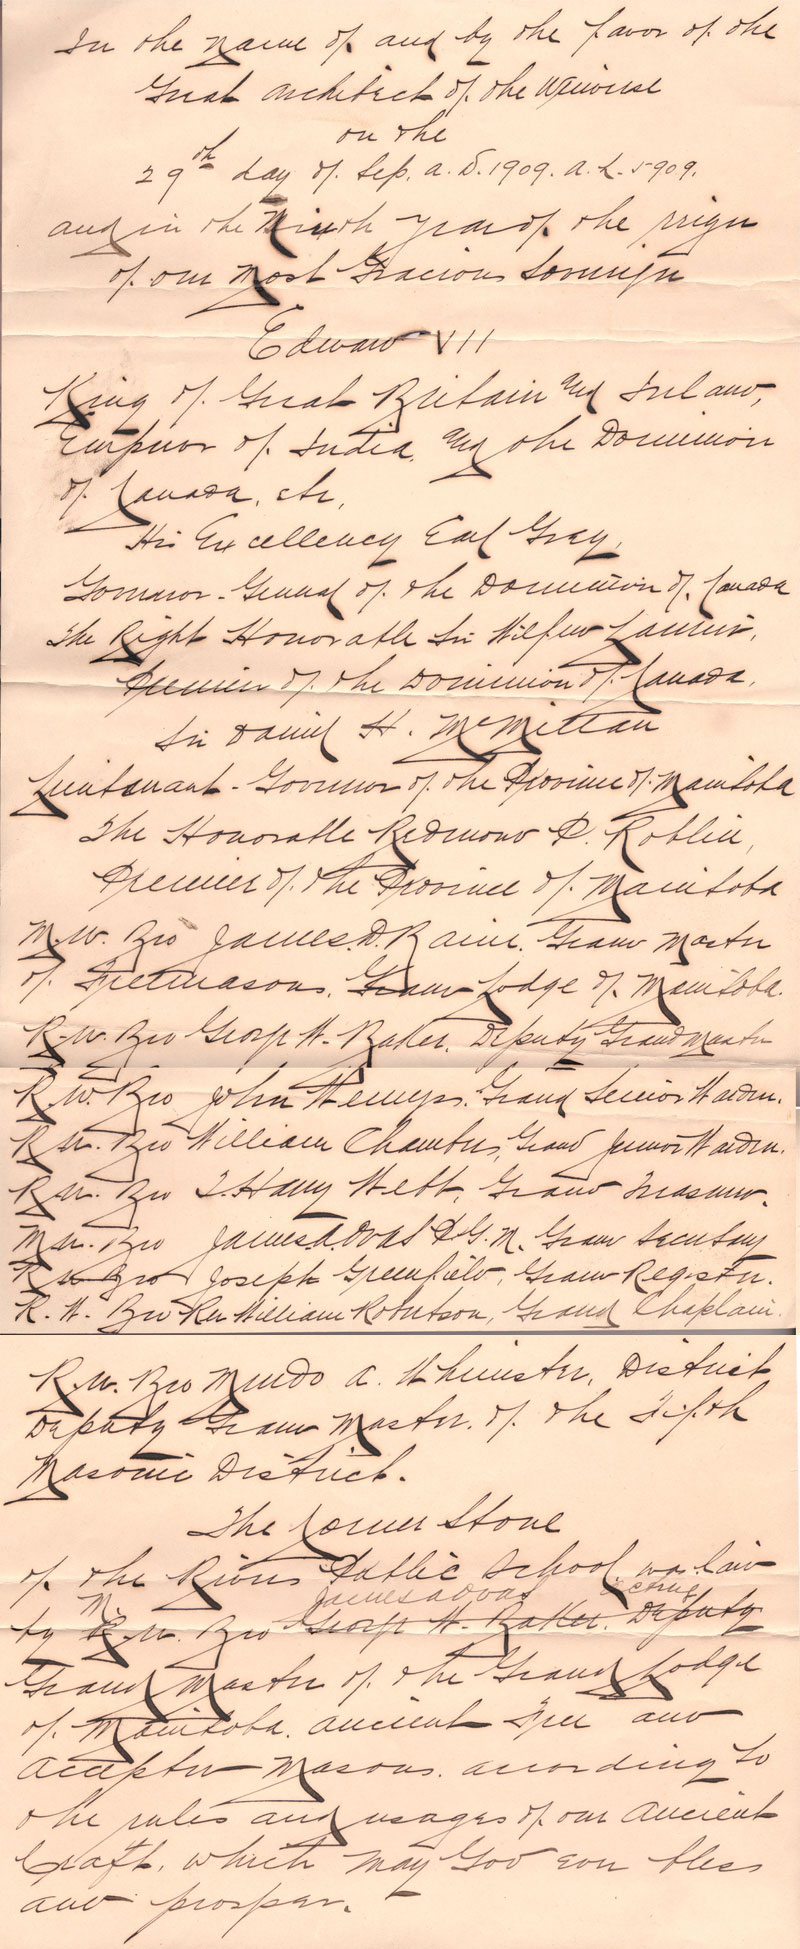 In the name of and by the favor of the
Great Architect of the Universe
on the
29th day of Sep. A.D. 1909. A.L. 5909.
and in the Ninth year of the reign
of our Most Gracious Sovereign
Edward VII
King of Great Britain and Ireland,
Emperor of India, and the Dominion
of Canada, etc,
His Excellency Earl Grey,
Governor-General of the Dominion of Canada
The Right Honorable Sir Wilfred Laurier,
Premier of the Dominion of Canada,
Sir Daniel H. McMillan
Lieutenant-Governor of the Province of Manitoba
The Honorable Redmond P. Roblin,
Premier of the Province of Manitoba
M.W. Bro James D. Baine. Grand Master
of Freemasons, Grand Lodge of Manitoba.
R.W. Bro George W. Baker. Deputy Grand Master
R.W. Bro John Wemyss. Grand Senior Warden.
R.W. Bro William Chambers, Grand Junior Warden.
R.W. Bro T. Harry Webb, Grand Treasurer.
M.W. Bro James A. Ovas P.G.M. Grand Secretary
R W Bro Joseph Greenfield, Grand Registrar.
R. W. Bro Rev William Robertson, Grand Chaplain.
R.W. Bro Murdo A. Whimster, District
Deputy Grand Master of the Fifth
Masonic District.
The Corner Stone
of the Rivers Public School, was laid
M. James A Ovas acting
by R.W. Bro George W. Baker. Deputy
Grand Master of the Grand Lodge
of Manitoba. Ancient Free and
Accepted Masons. according to
the rules and usages of our Ancient
Craft, which may God ever bless
and prosper.